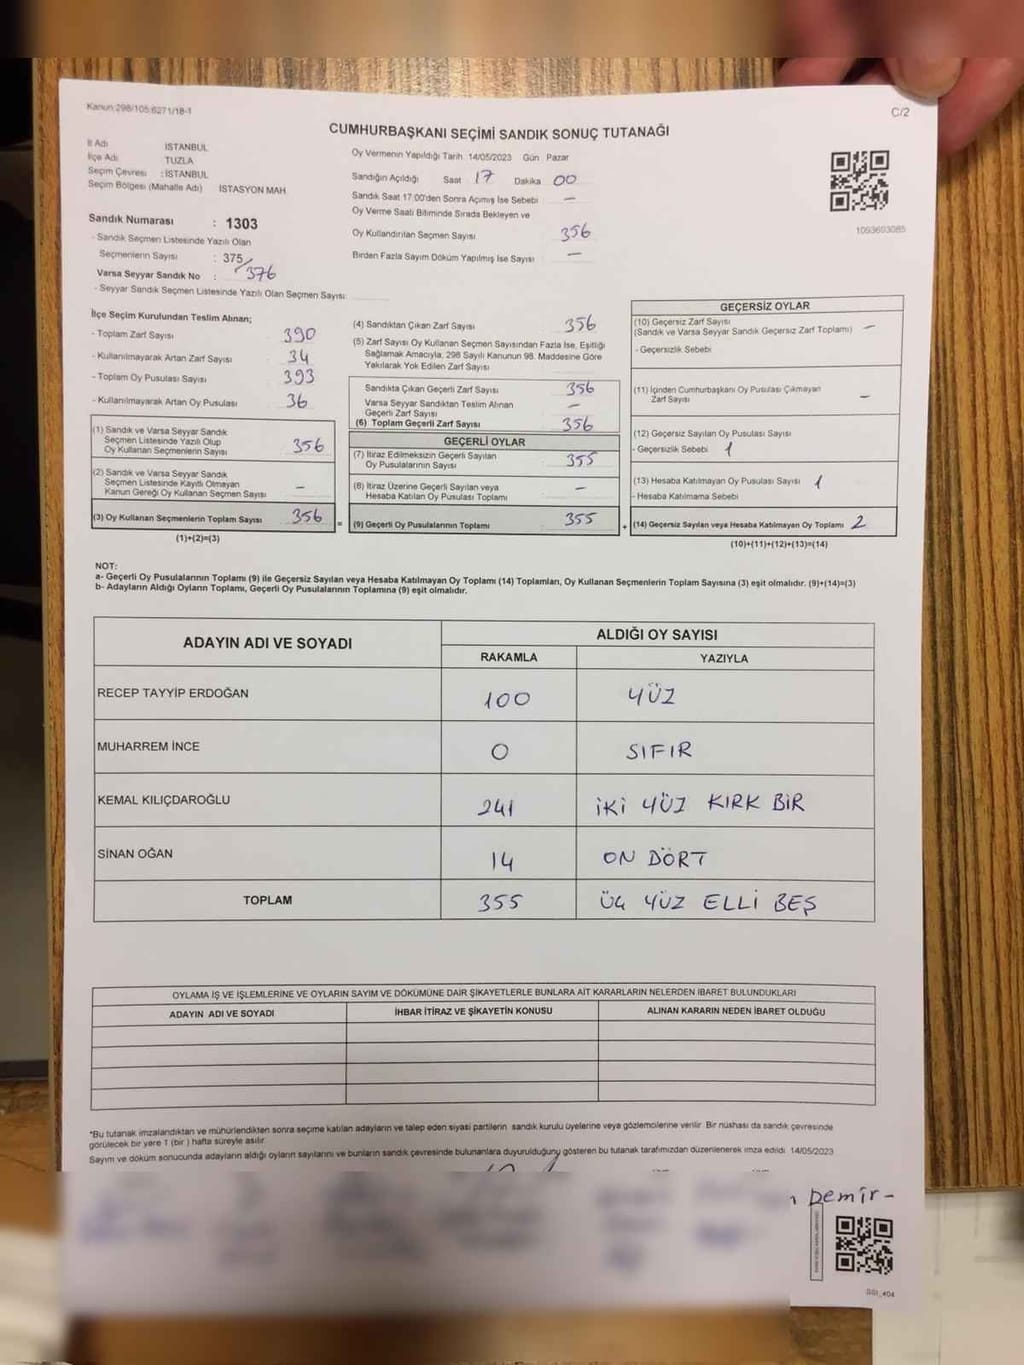 Kanun:298/105;6271/18-1
C/2
CUMHURBAŞKANI SEÇİMİ SANDIK SONUÇ TUTANAĞI
İl Adı İSTANBUL
İlçe Adı TUZLA
Seçim Çevresi : İSTANBUL
Seçim Bölgesi (Mahalle Adı) İSTASYON MAH.
Sandık Numarası : 1303
- Sandık Seçmen Listesinde Yazılı Olan
Seçmenlerin Sayısı : 375
376
Varsa Seyyar Sandık No :
- Seyyar Sandık Seçmen Listesinde Yazılı Olan Seçmen Sayısı:
Oy Vermenin Yapıldığı Tarih 14/05/2023 Gün Pazar
Sandığın Açıldığı Saat 17 Dakika 00
Sandık Saat 17.00'den Sonra Açımış İse Sebebi —
Oy Verme Saati Bitiminde Sırada Bekleyen ve
Oy Kullandırılan Seçmen Sayısı 356
Birden Fazla Sayım Döküm Yapılmış İse Sayısı —
1093693085
İlçe Seçim Kurulundan Teslim Alınan;
- Toplam Zarf Sayısı 390
- Kullanılmayarak Artan Zarf Sayısı 34
- Toplam Oy Pusulası Sayısı 393
- Kullanılmayarak Artan Oy Pusulası 36
(1) Sandık ve Varsa Seyyar Sandık
Seçmen Listesinde Yazılı Olup
Oy Kullanan Seçmenlerin Sayısı 356
(2) Sandık ve Varsa Seyyar Sandık
Seçmen Listesinde Kayıtlı Olmayan
Kanun Gereği Oy Kullanan Seçmen Sayısı —
(3) Oy Kullanan Seçmenlerin Toplam Sayısı 356 =
(1)+(2)=(3)
(4) Sandıktan Çıkan Zarf Sayısı 356
(5) Zarf Sayısı Oy Kullanan Seçmen Sayısından Fazla İse, Eşitliği
Sağlamak Amacıyla, 298 Sayılı Kanunun 98. Maddesine Göre
Yakılarak Yok Edilen Zarf Sayısı
Sandıkta Çıkan Geçerli Zarf Sayısı 356
Varsa Seyyar Sandıktan Teslim Alınan
Geçerli Zarf Sayısı —
(6) Toplam Geçerli Zarf Sayısı 356
GEÇERLİ OYLAR
(7) İtiraz Edilmeksizin Geçerli Sayılan
Oy Pusulalarının Sayısı 355
(8) İtiraz Üzerine Geçerli Sayılan veya
Hesaba Katılan Oy Pusulası Toplamı —
(9) Geçerli Oy Pusulalarının Toplamı 355 +
GEÇERSİZ OYLAR
(10) Geçersiz Zarf Sayısı
(Sandık ve Varsa Seyyar Sandık Geçersiz Zarf Toplamı) —
- Geçersizlik Sebebi
(11) İçinden Cumhurbaşkanı Oy Pusulası Çıkmayan
Zarf Sayısı —
(12) Geçersiz Sayılan Oy Pusulası Sayısı
- Geçersizlik Sebebi 1
(13) Hesaba Katılmayan Oy Pusulası Sayısı 1
- Hesaba Katılmama Sebebi
(14) Geçersiz Sayılan veya Hesaba Katılmayan Oy Toplamı 2
(10)+(11)+(12)+(13)=(14)
NOT:
a- Geçerli Oy Pusulalarının Toplamı (9) ile Geçersiz Sayılan veya Hesaba Katılmayan Oy Toplamı (14) Toplamları, Oy Kullanan Seçmenlerin Toplam Sayısına (3) eşit olmalıdır. (9)+(14)=(3)
b- Adayların Aldığı Oyların Toplamı, Geçerli Oy Pusulalarının Toplamına (9) eşit olmalıdır.
ADAYIN ADI VE SOYADI
ALDIĞI OY SAYISI
RAKAMLA YAZIYLA
RECEP TAYYİP ERDOĞAN 100 YÜZ
MUHARREM İNCE 0 SIFIR
KEMAL KILIÇDAROĞLU 241 İKİ YÜZ KIRK BİR
SİNAN OĞAN 14 ON DÖRT
TOPLAM 355 ÜÇ YÜZ ELLİ BEŞ
OYLAMA İŞ VE İŞLEMLERİNE VE OYLARIN SAYIM VE DÖKÜMÜNE DAİR ŞİKAYETLERLE BUNLARA AİT KARARLARIN NELERDEN İBARET BULUNDUKLARI
ADAYIN ADI VE SOYADI İHBAR İTİRAZ VE ŞİKAYETİN KONUSU ALINAN KARARIN NEDEN İBARET OLDUĞU
*Bu tutanak imzalandıktan ve mühürlendikten sonra seçime katılan adayların ve talep eden siyasi partilerin sandık kurulu üyelerine veya gözlemcilerine verilir. Bir nüshası da sandık çevresinde
görülecek bir yere 1 (bir ) hafta süreyle asılır.
Sayım ve döküm sonucunda adayların aldığı oyların sayılarını ve bunların sandık çevresinde bulunanlara duyurulduğunu gösteren bu tutanak tarafımızdan düzenlenerek imza edildi. 14/05/2023
Demir-